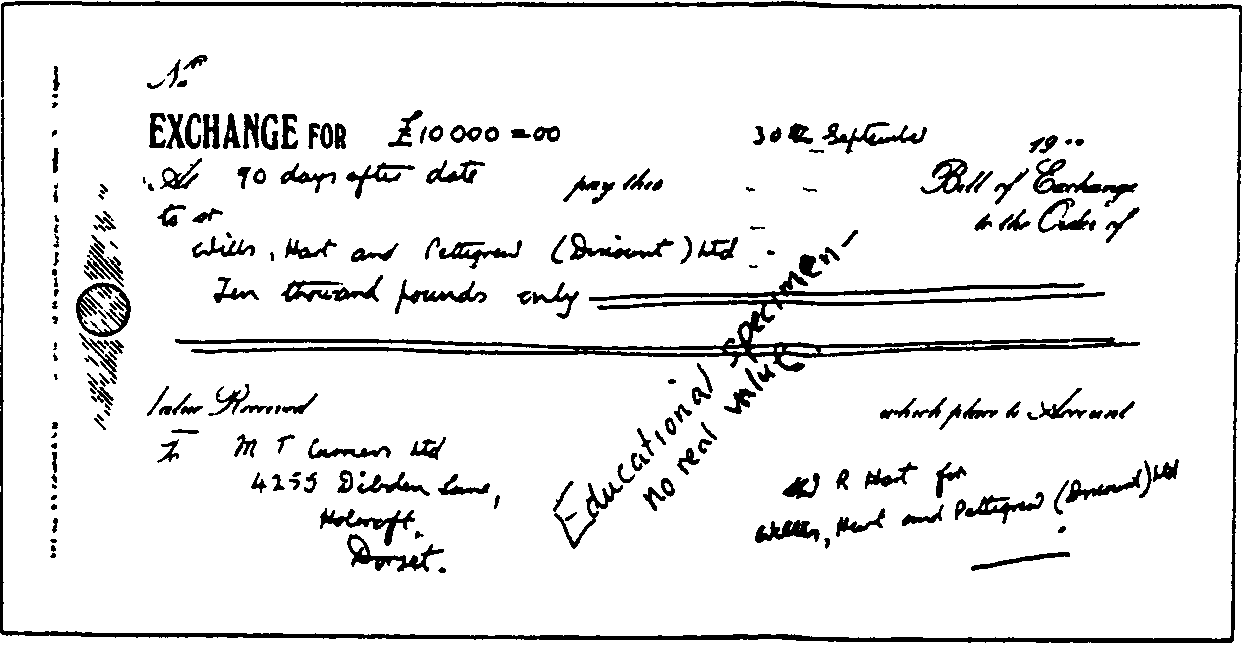 No.
EXCHANGE FOR £10000=00 30th September 19..
At 90 days after date pay this Bill of Exchange
to or to the Order of
Wills, Hart and Pettigrew (Discount) Ltd
Ten thousand pounds only
Value Received which place to Account
To M T Ltd
4255 Dibden Lane,
Holcroft,
Dorset.
W R Hart for
Wills, Hart and Pettigrew (Discount) Ltd
Educational specimen
no real value